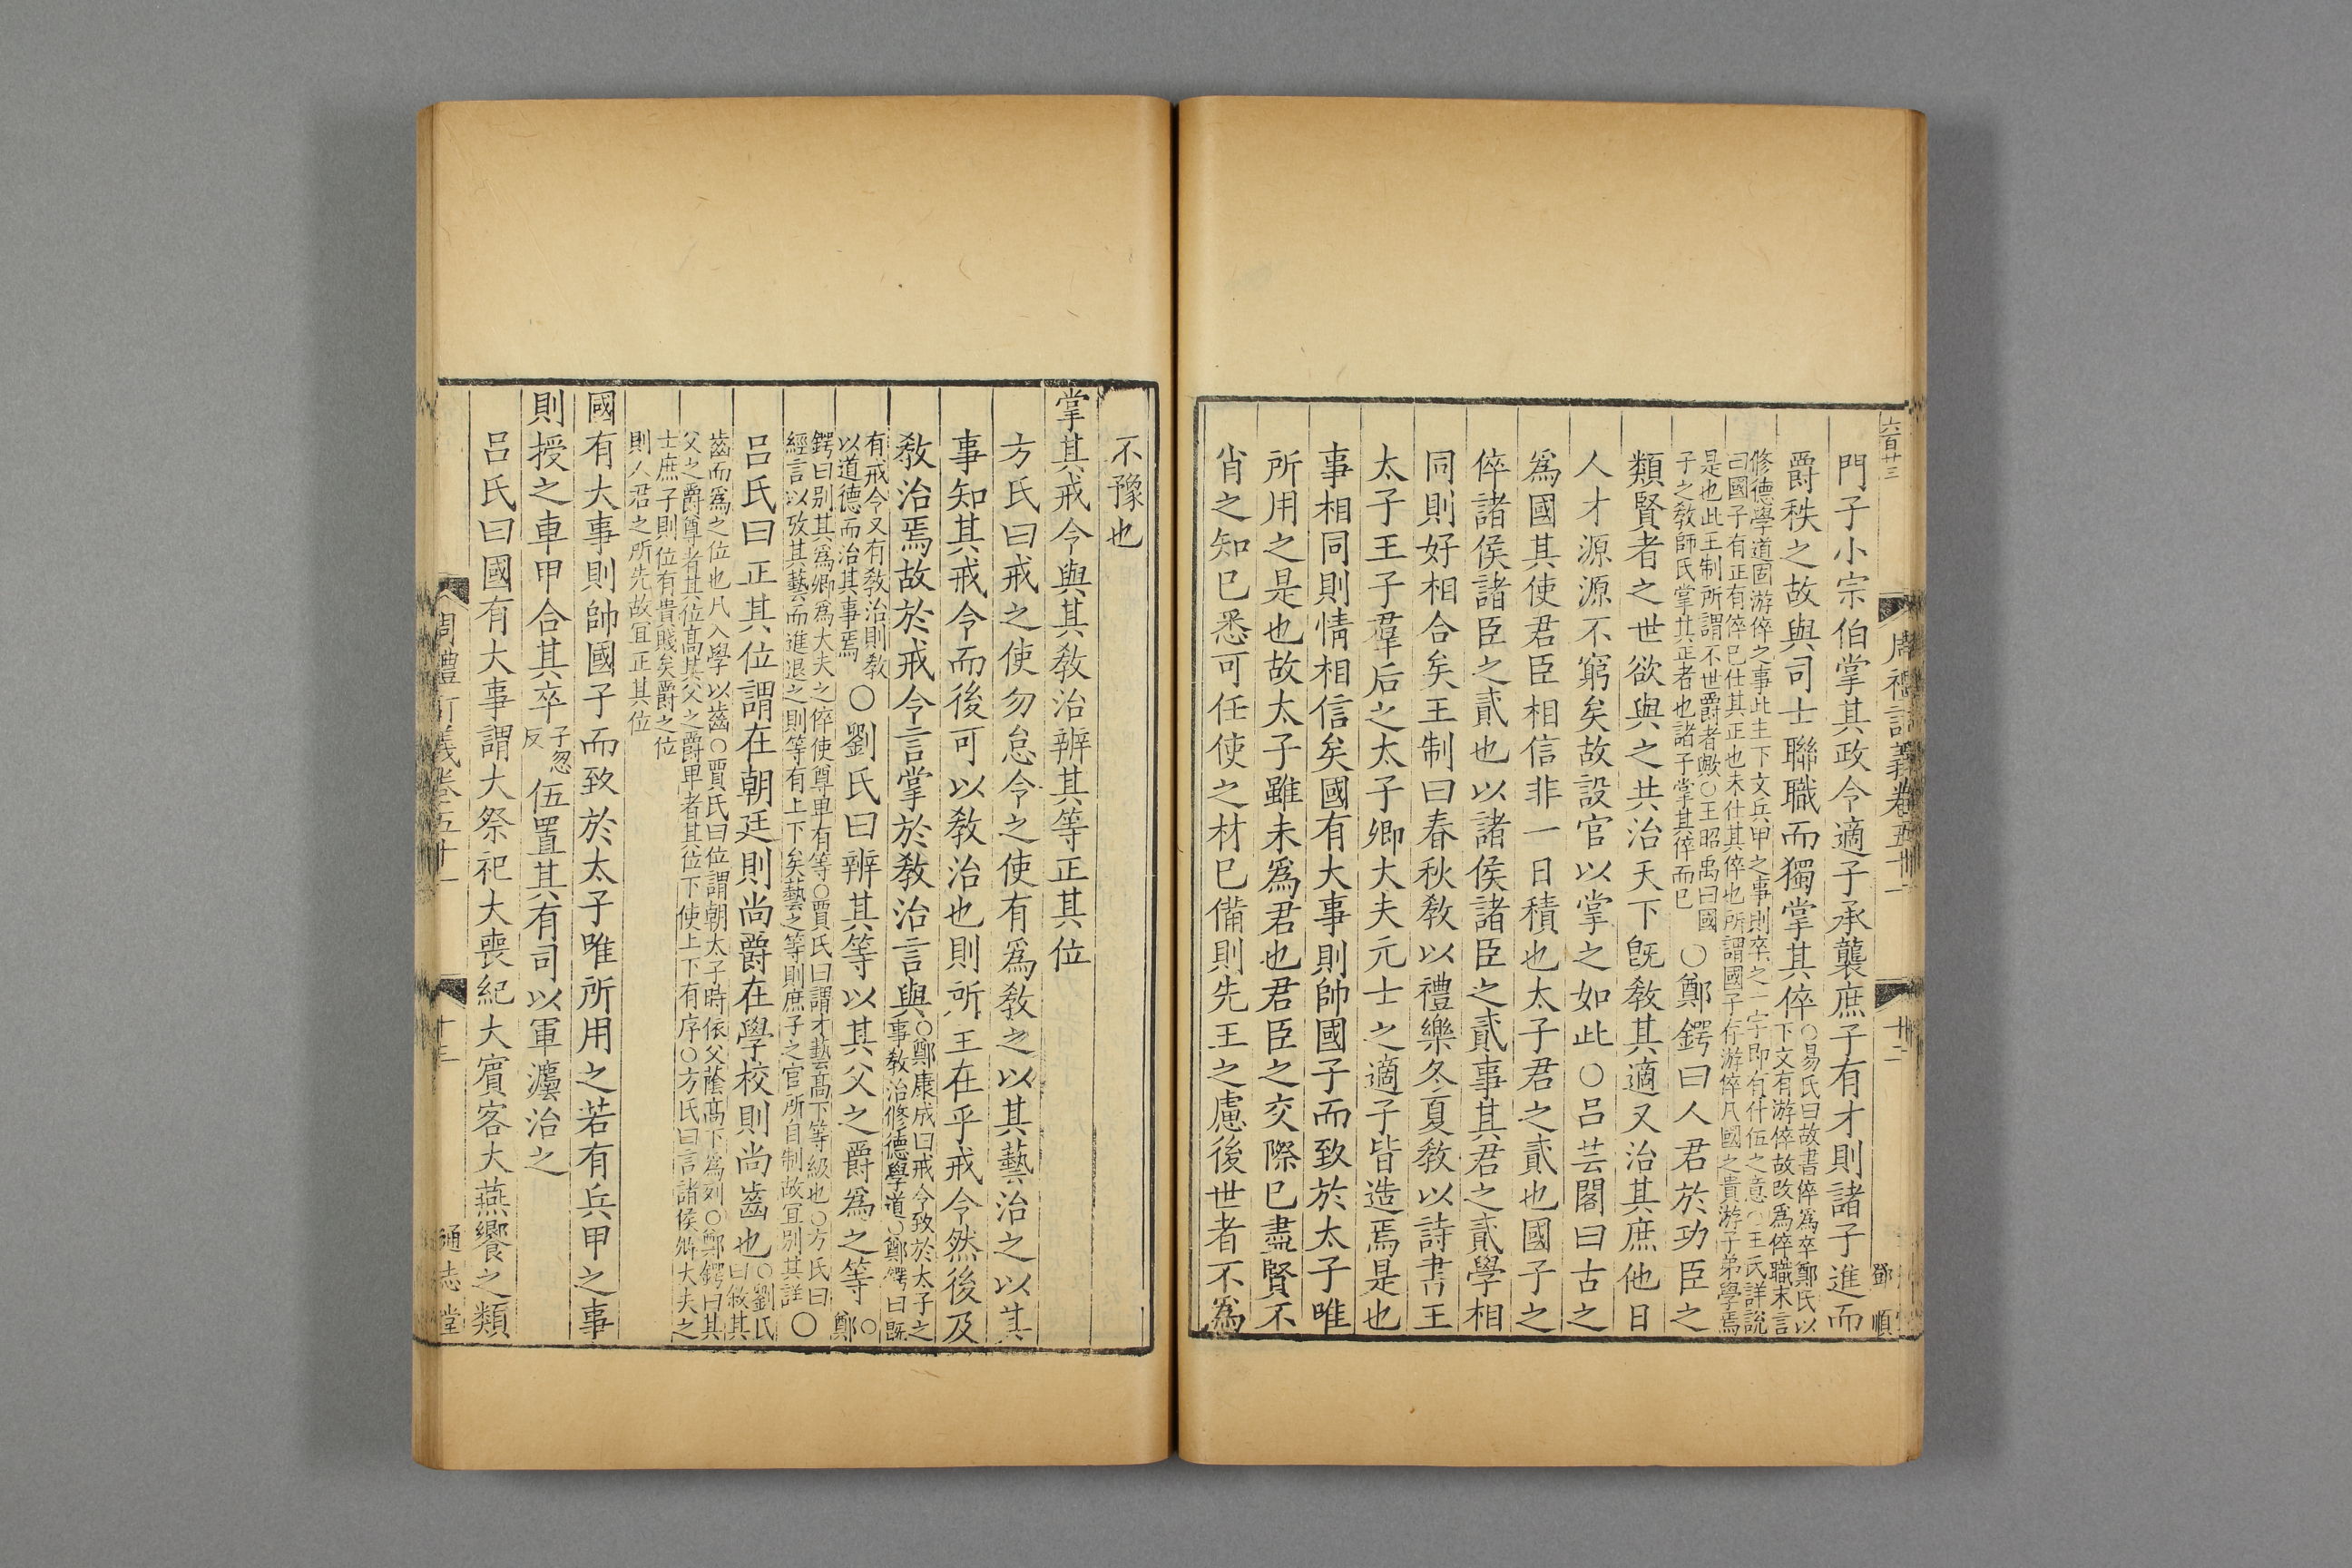 六百廿三
周禮訂義卷五十一
十二
鄧順
門子小宗伯掌其政令適子承襲庶子有才則諸子進而
爵秩之故與司士聯職而獨掌其倅○易氏曰故書倅爲卒鄭氏以
下文有游倅故改爲倅職末言
修德學道固游倅之事此主下文兵甲之事則卒之一字即有什伍之意○王氏詳說
曰國子有正有倅已仕其正也未仕其倅也所謂國子存游倅凡國之貴游子弟學焉
是也此王制所謂不世爵者歟○王昭禹曰國
子之敎師氏掌其正者也諸子掌其倅而已
○鄭鍔曰人君於功臣之
類賢者之世欲與之共治天下旣敎其適又治其庶他日
人才源源不窮矣故設官以掌之如此○呂芸閣曰古之
爲國其使君臣相信非一日積也太子君之貳也國子之
倅諸侯諸臣之貳也以諸侯諸臣之貳事其君之貳學相
同則好相合矣王制曰春秋敎以禮樂冬夏敎以詩書王
太子王子羣后之太子卿大夫元士之適子皆造焉是也
事相同則情相信矣國有大事則帥國子而致於太子唯
所用之是也故太子雖未爲君也君臣之交際已盡賢不
肖之知已悉可任使之材已備則先王之慮後世者不爲
不豫也
掌其戒令與其敎治辨其等正其位
方氏曰戒之使勿怠令之使有爲敎之以其藝治之以其
事知其戒令而後可以敎治也則所王在乎戒令然後及
敎治焉故於戒令言掌於敎治言與○鄭康成曰戒令致於太子之
事敎治修德學道○鄭鍔曰旣
有戒令又有敎治則敎
以道德而治其事焉
○劉氏曰辨其等以其父之爵爲之等○
鄭
鍔曰别其爲卿爲大夫之倅使尊卑有等○賈氏曰謂才藝髙下等級也○方氏曰
經言以攷其藝而進退之則等有上下矣藝之等則庶子之官所自制故冝别其詳
○
呂氏曰正其位謂在朝廷則尚爵在學校則尚齒也○劉氏
曰攸其
齒而爲之位也凡入學以齒○賈氏曰位謂朝太子時依父蔭髙下爲列○鄭鍔曰其
父之爵尊者其位髙其父之爵卑者其位下使上下有序○方氏曰言諸侯卿大夫之
士庶子則位有貴賤矣爵之位
則人君之所先故冝正其位
國有大事則帥國子而致於太子唯所用之若有兵甲之事
則授之車甲合其卒子忽
反伍置其有司以軍灋治之
呂氏曰國有大事謂大祭祀大喪紀大賓客大燕饗之類
周禮訂義卷五十一
十三
通志堂